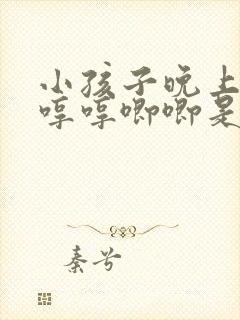 小孩子晚上
哼哼唧唧是
秦兮